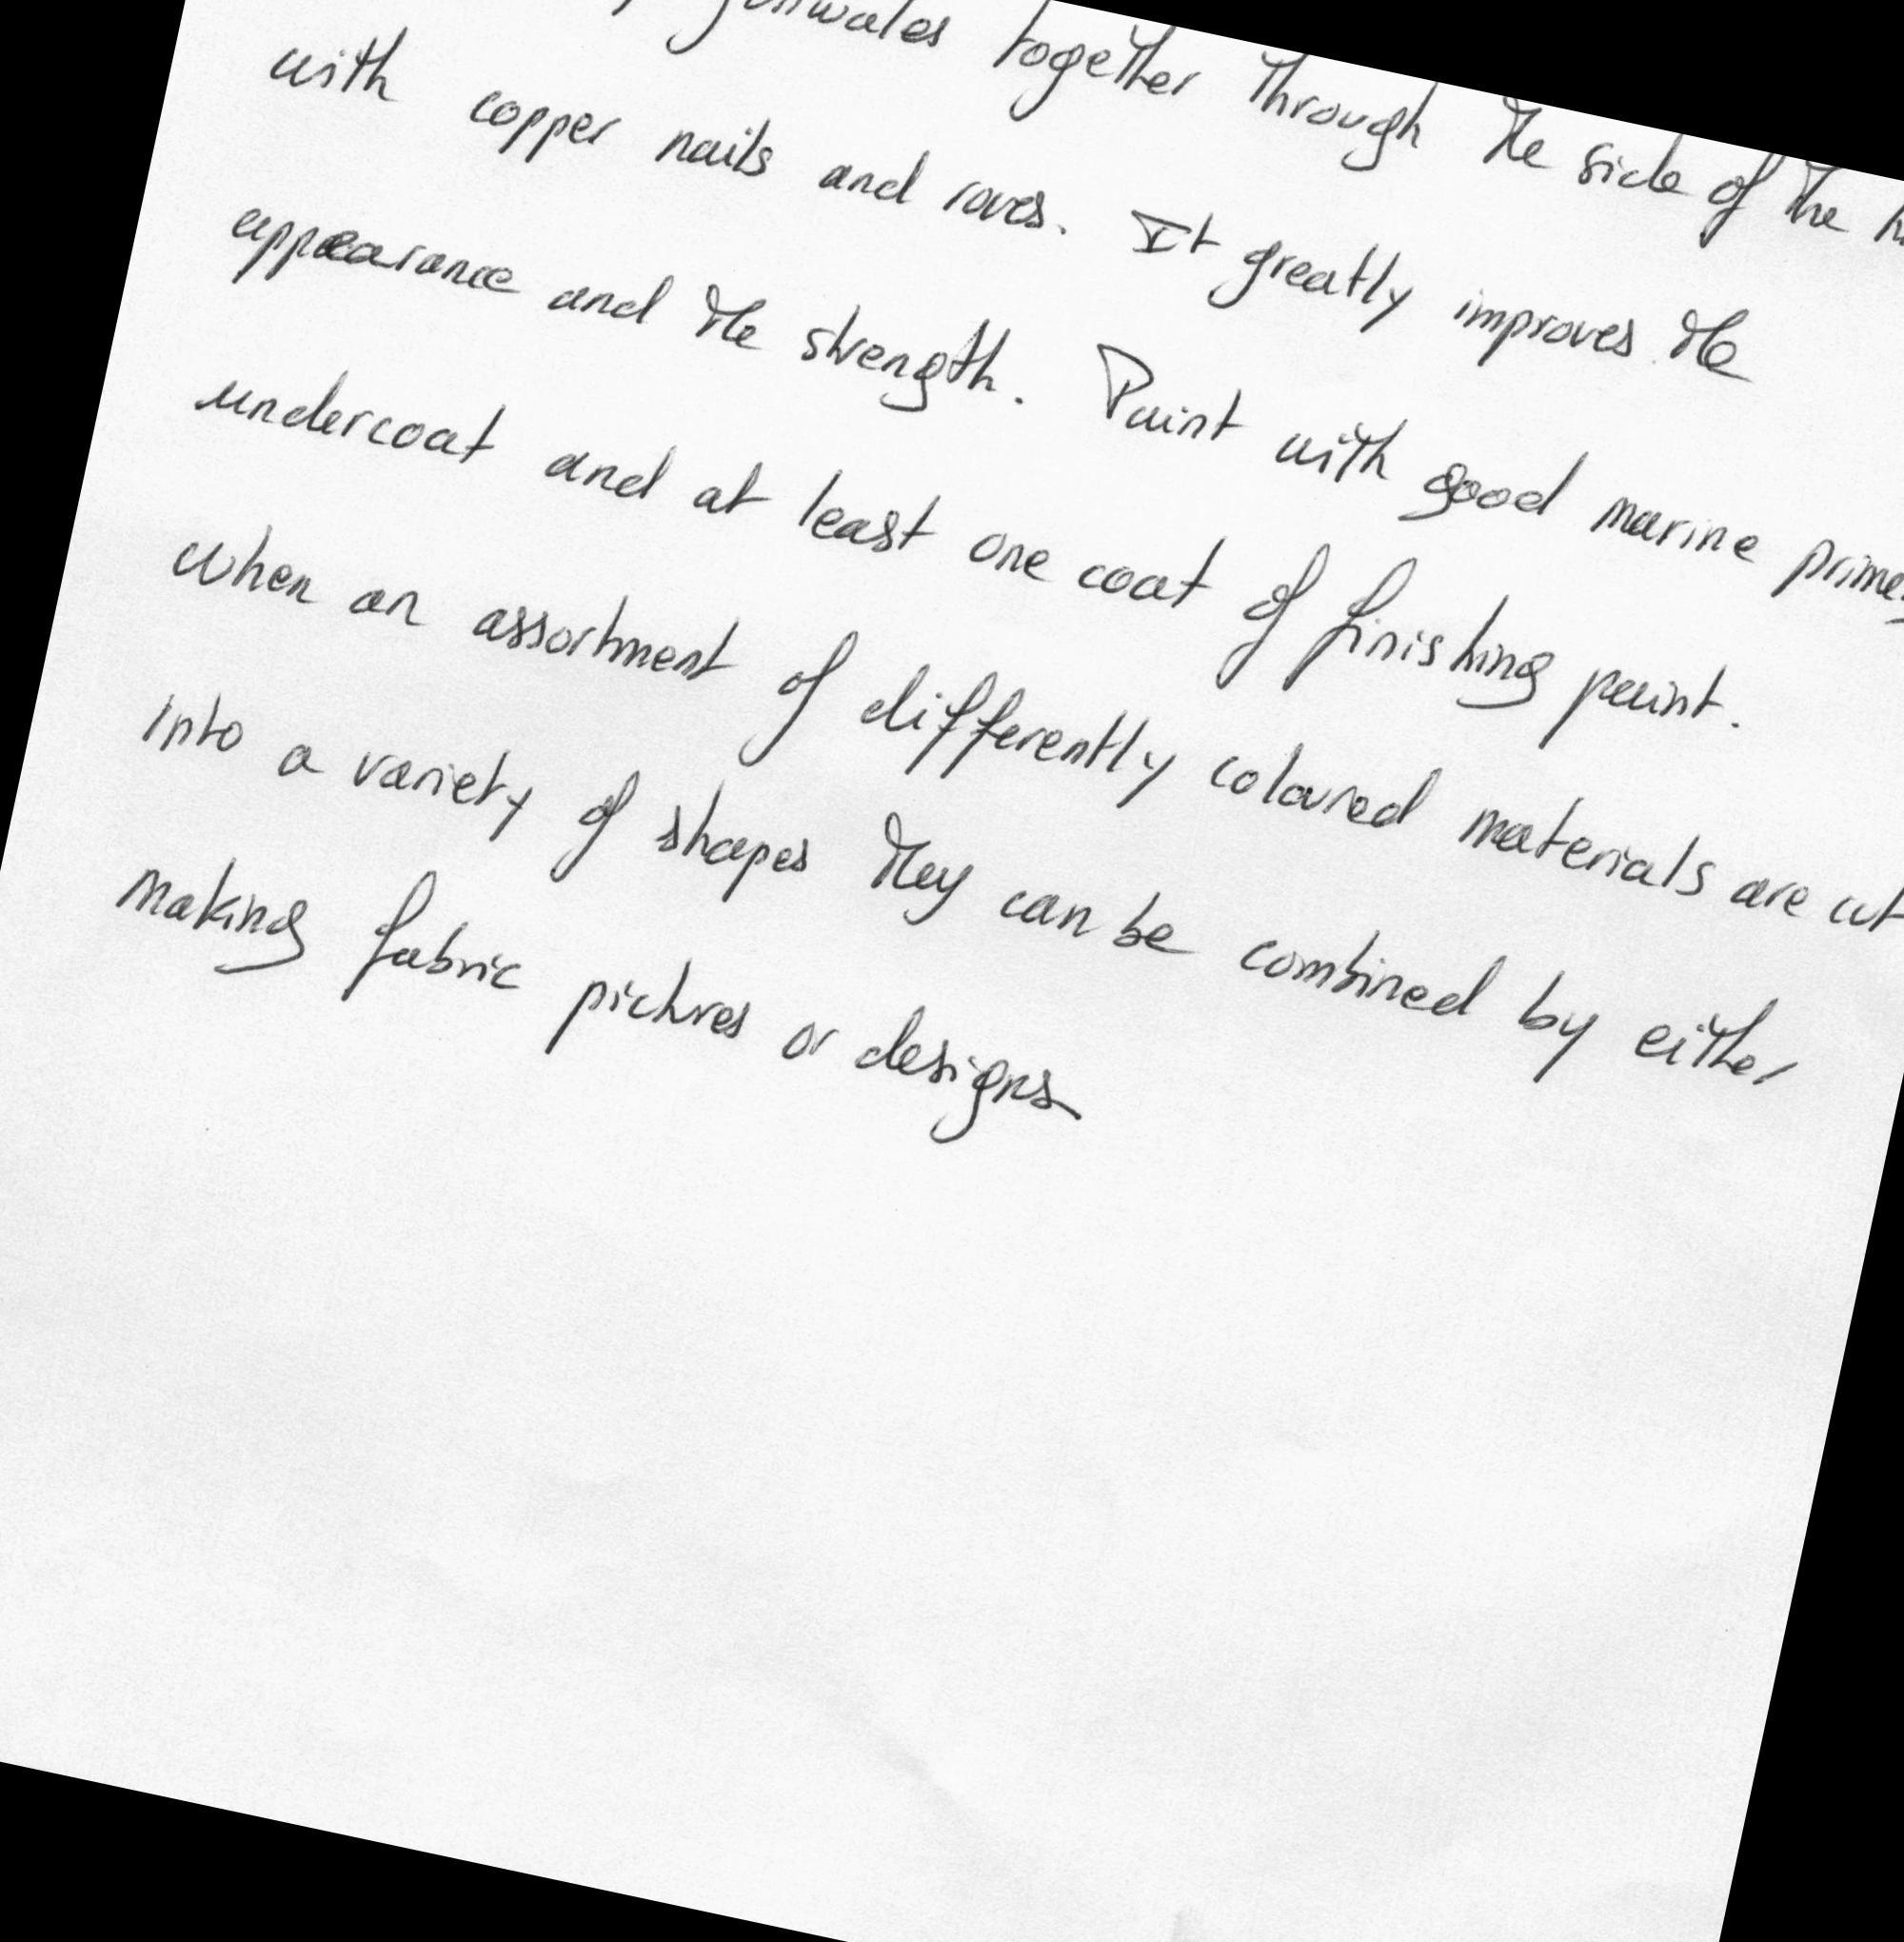 gunwales together through the side of the
with copper nails and roves. It greatly improves the
appearance and the strength. Paint with good marine
undercoat and at least one coat of finishing paint.
When an assortment of differently coloured materials are cut
into a variety of shapes they can be combined by either
making fabric pictures or designs